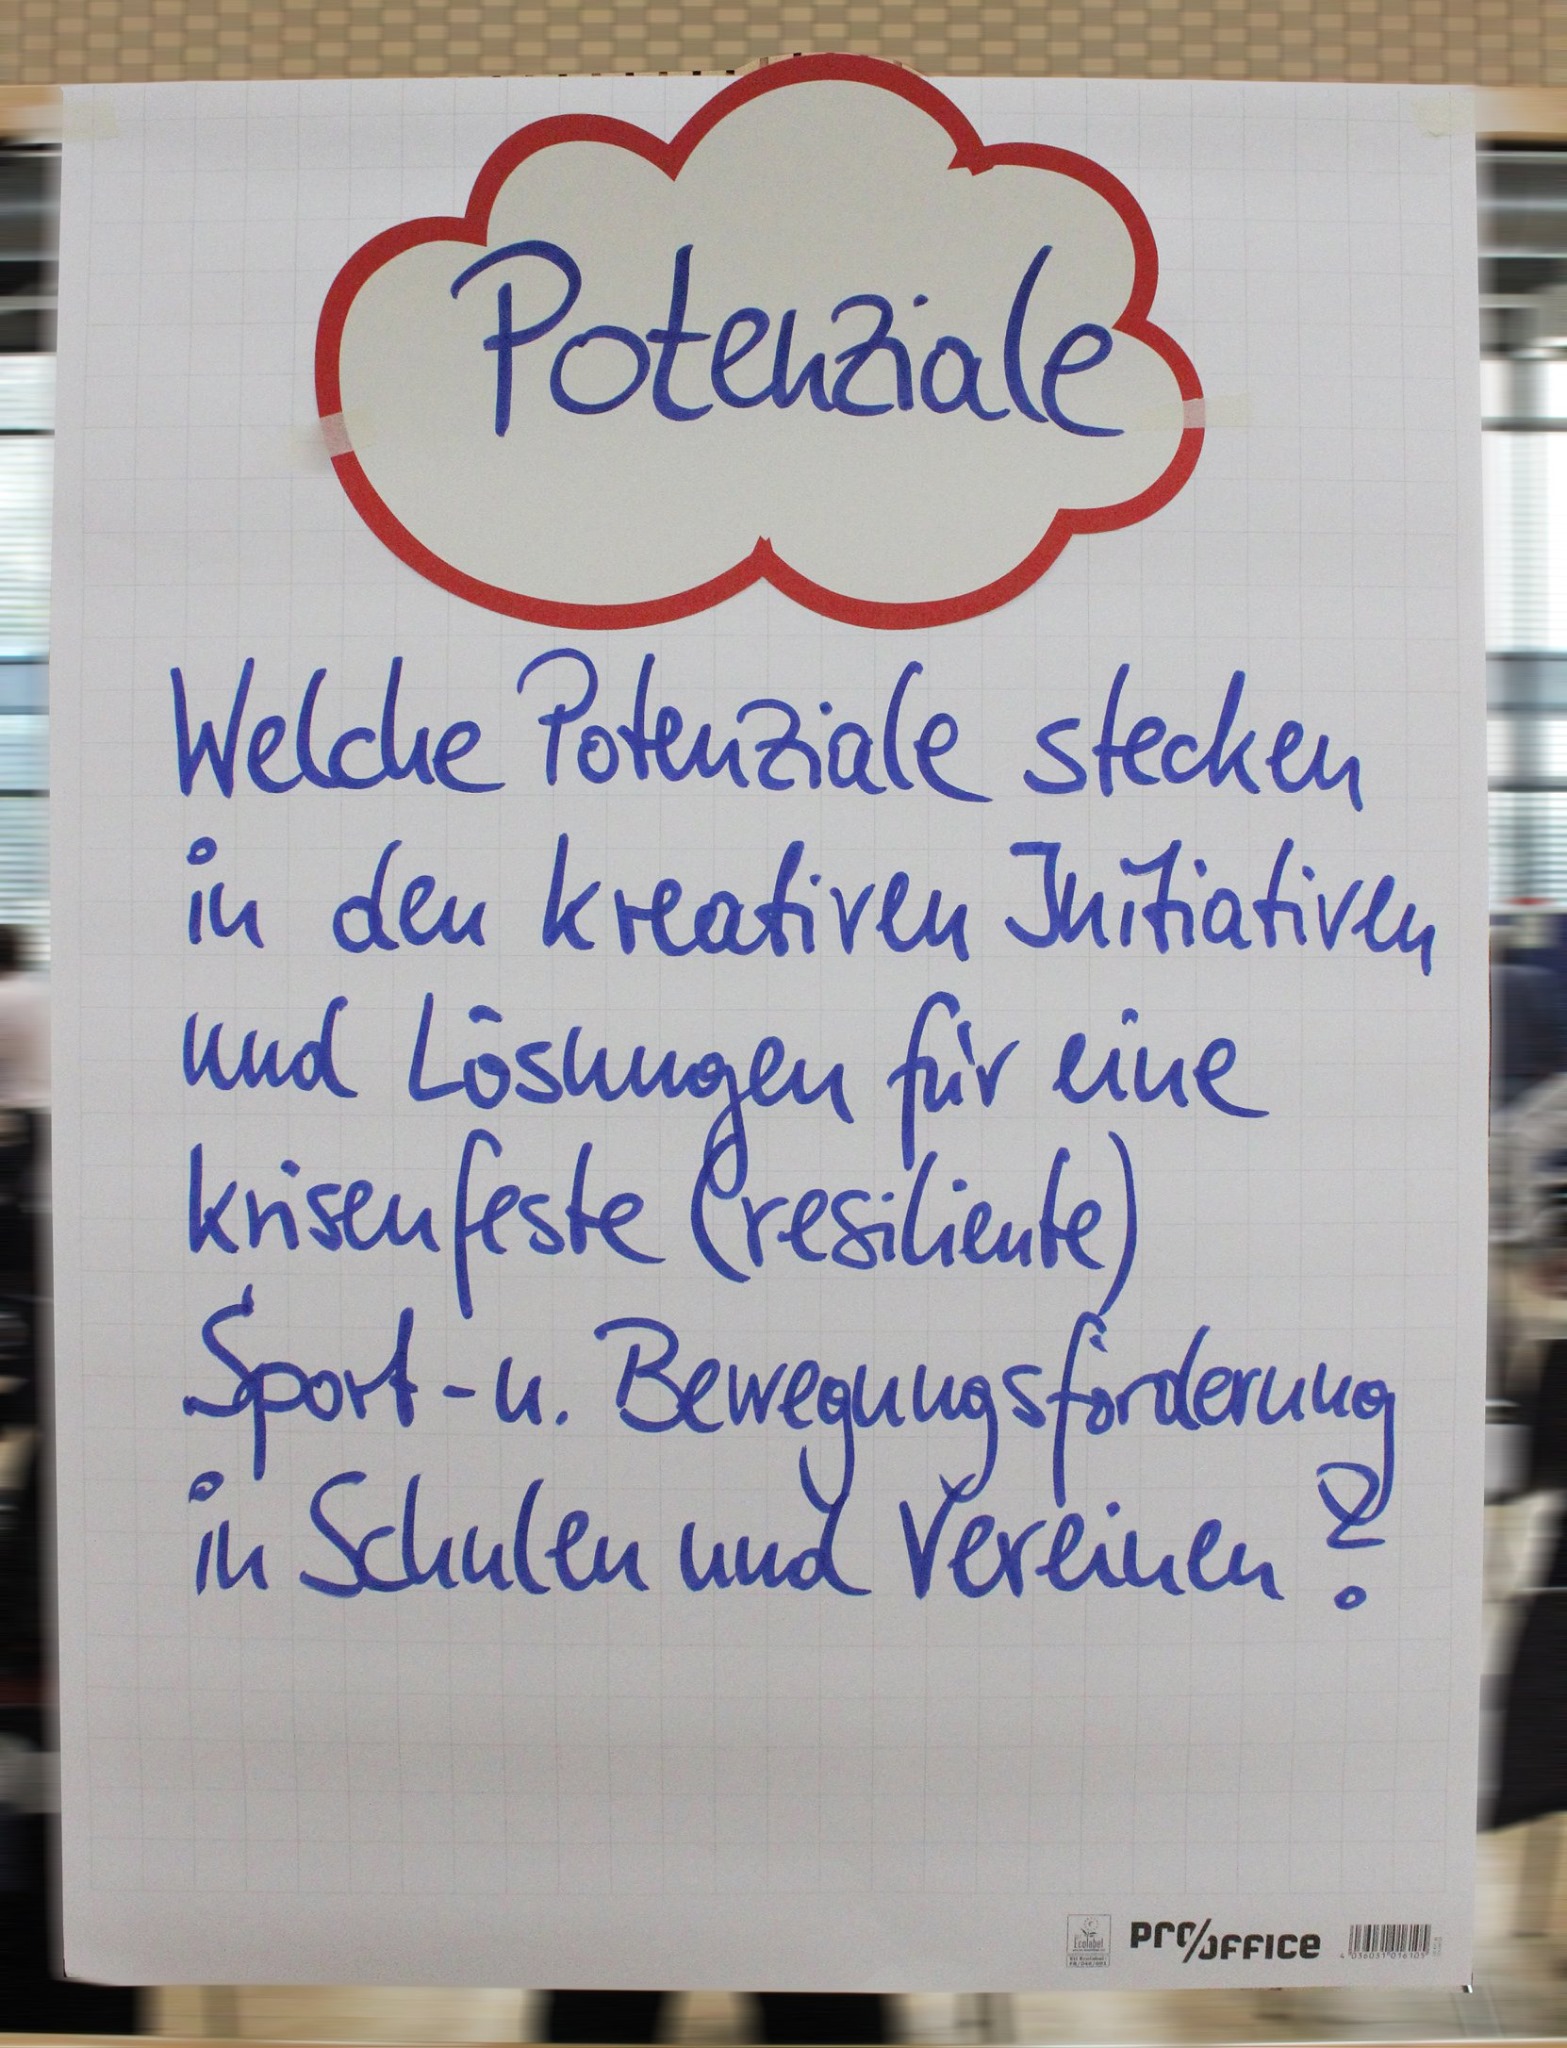 Potenziale
Welche Potenziale stecken
in den kreativen Initiativen
und Lösungen für eine
krisenfeste (resiliente)
Sport- u. Bewegungsförderung
in Schulen und Vereinen?
Ecolabel
PRO/OFFICE
4 036031 016105